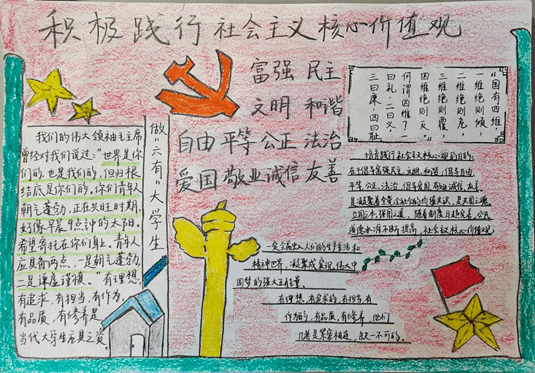 积极践行社会主义核心价值观
富强 民主
文明 和谐
自由 平等 公正 法治
爱国 敬业 诚信 友善
"国有四维，
一维绝则倾，
二维绝则危，
三维绝则覆，
四维绝则灭。"
何谓四维？
一曰礼、二曰义、
三曰廉、四曰耻
做"六有"大学生
我们的伟大领袖毛主席
曾经对我们说过："世界是你
们的，也是我们的，但归根
结底是你们的。你们青年人
朝气蓬勃，正在兴旺时期，
好像早晨
希望寄托在你们身上。青年人
应具备两点，一是朝气蓬勃，
二是谦虚谨慎。"有理想，
有追求，有担当，有作为，
有品质，有修养是
当代大学生应具之资。
培育践行社会主义核心价值观的目的：
平等、公正、法治，倡导爱国、敬业、诚信、友善，
精神世界，凝聚成实现伟大中
国梦的强大正能量。
有理想，有追求的，有担当，有
作为的，有品质，有修养，他们